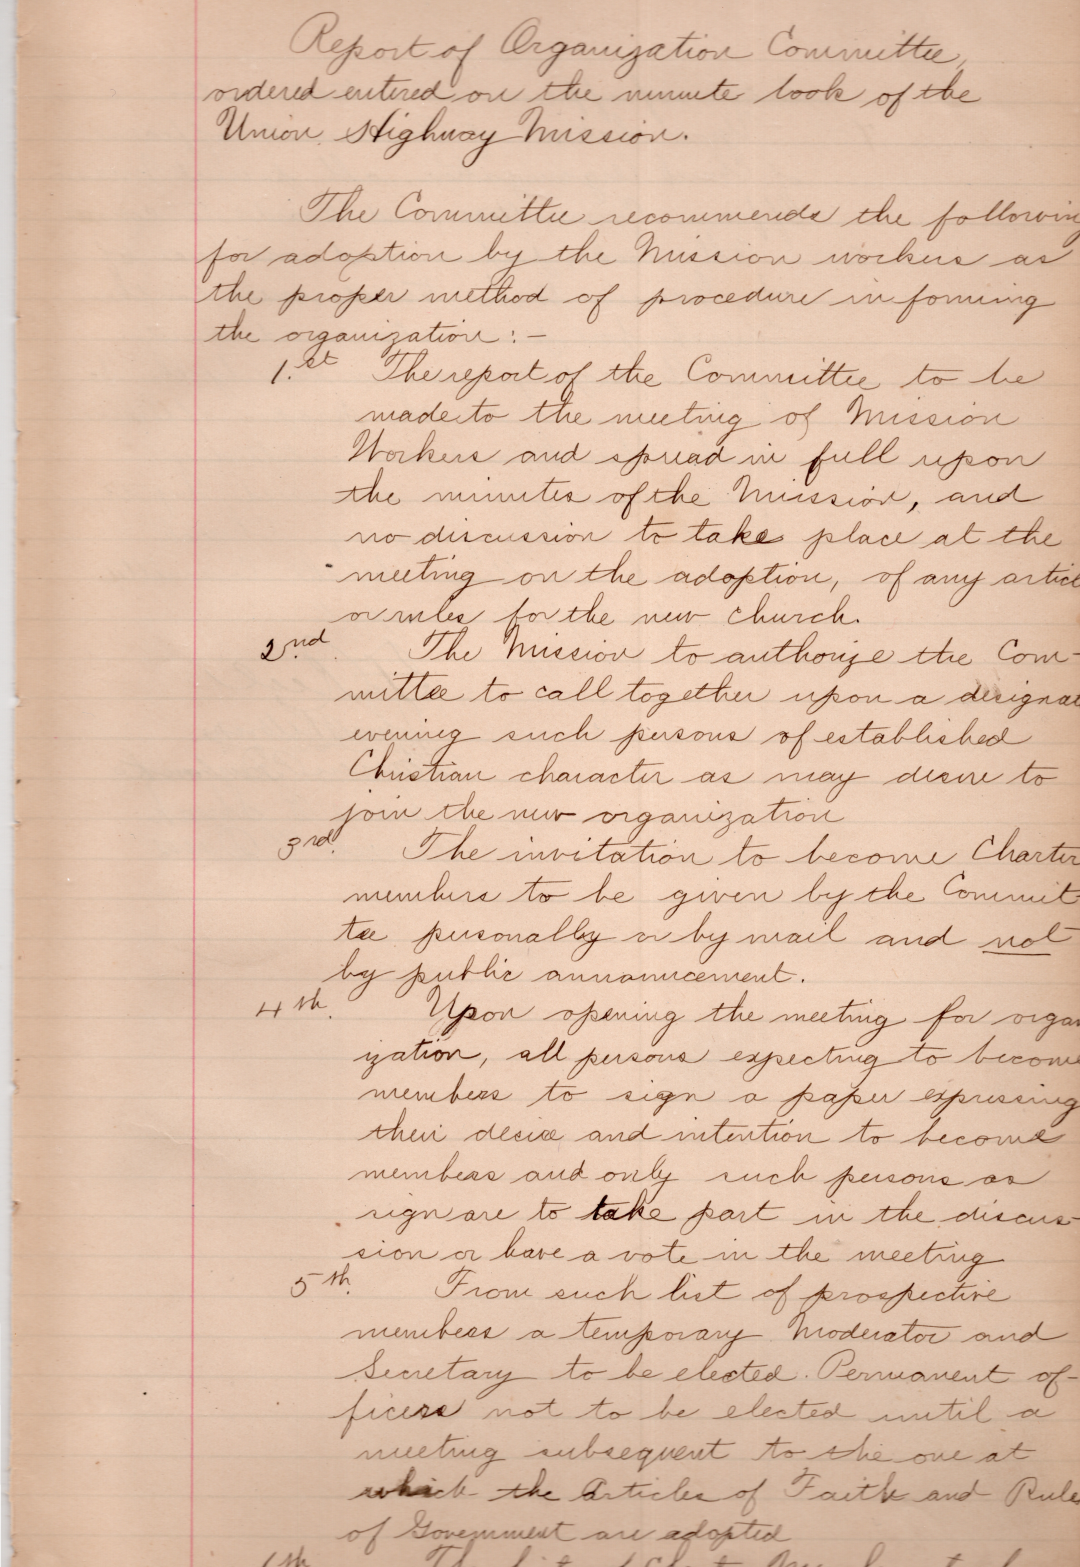 Report of Organization Committee,
ordered entered on the minute book of the
Union Highway Mission.
The Committee recommends the following
for adoption by the Mission workers as
the proper method of procedure in forming
the organization:-
1.st The report of the Committee to be
made to the meeting of Mission
Workers and spread in full upon
the minutes of the Mission, and
no discussion to take place at the
meeting on the adoption, of any artic
or rules for the new church.
2nd. The Mission to authorize the Com-
mittee to call together upon a designat
evening such persons of established
Christian character as may desire to
join the new organization
3rd. The invitation to become Charter
members to be given by the Commit
tee personally or by mail and not
by public announcement.
4th. Upon opening the meeting for organ
ization, all persons expecting to become
members to sign a paper expressing
their desire and intention to become
members and only such persons as
sign are to take part in the discus-
sion or have a vote in the meeting
5th. From such list of prospective
members a temporary Moderator and
Secretary to be elected. Permanent of-
ficers not to be elected until a
meeting subsequent to the one at
which the Articles of Faith and Rule
of Government are adopted
6th